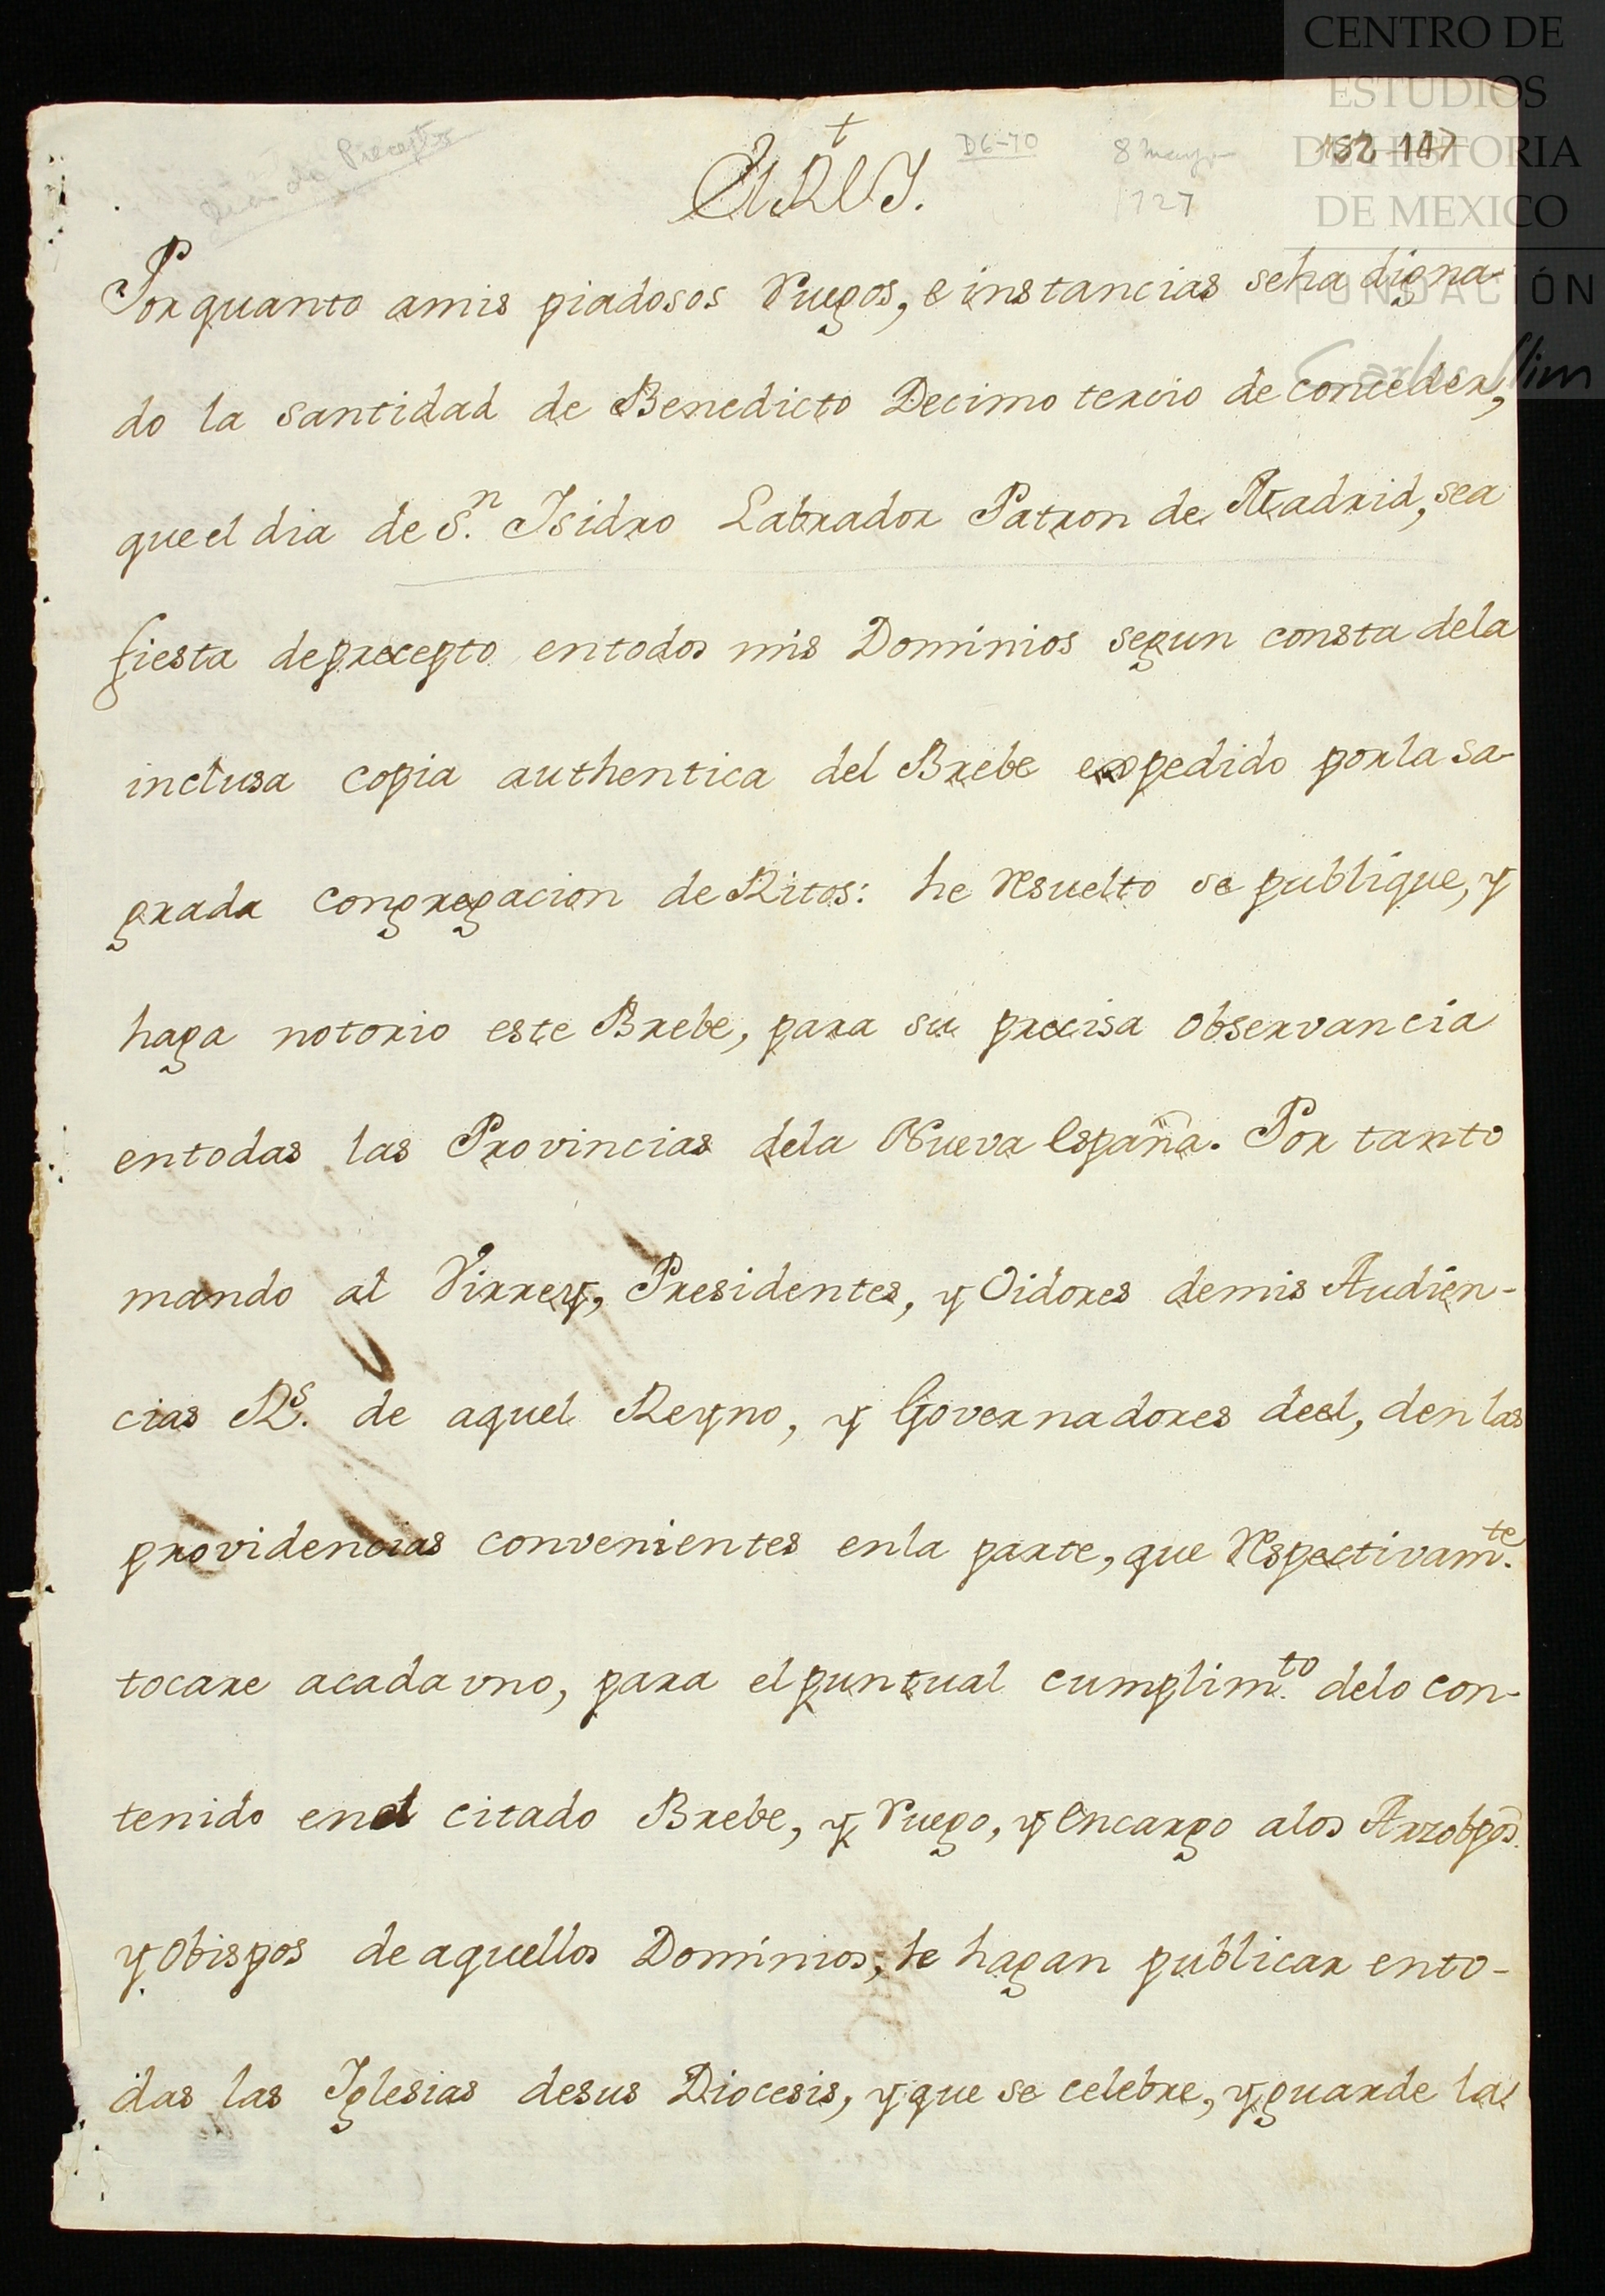 CENTRO DE
ESTUDIOS
DE HISTORIA
DE MEXICO
FUNDACIÓN
Carlos Slim
de Preceptos
D6-70
8 mayo
1727
†
El Rey.
Por quanto amis piadosos Ruegos, e instancias seha digna-
do la santidad de Benedicto Decimo tercio de conceder,
que el dia de S.ⁿ Isidro Labrador Patron de Madrid, sea
fiesta deprecepto entodos mis Dominios segun consta dela
inclusa copia authentica del Brebe expedido porla sa-
grada congregacion de Ritos: he resuelto se publique, y
haga notorio este Brebe, para su precisa observancia
entodas las Provincias dela Nueva España. Por tanto
mando al Virrey, Presidentes, y Oidores demis Audien-
cias R.ˢ de aquel Reyno, y Governadores deel, den las
providencias convenientes enla parte, que respectivam.ᵗᵉ
tocare acada vno, para el puntual cumplim.ᵗᵒ delo con-
tenido enel citado Brebe, y Ruego, y encargo alos Arzobpos.
y Obispos de aquellos Dominios, le hagan publicar ento-
das las Iglesias desus Diocesis, y que se celebre, y guarde la